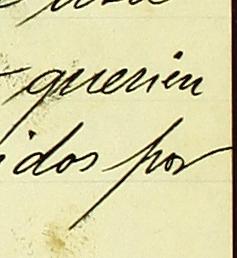 querien
idos por